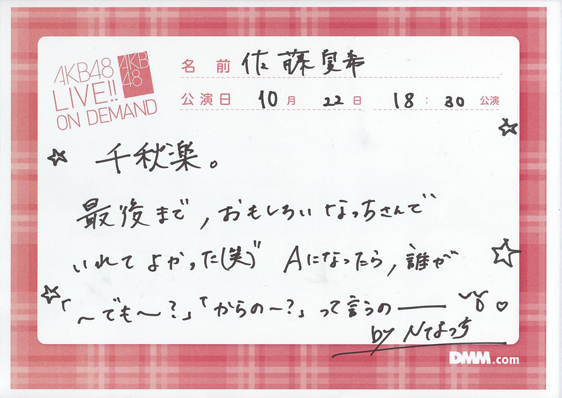 AKB48
LIVE!!
ON DEMAND
AKB
48
名前 佐藤夏希
公演日 10月 22日 18:30 公演
千秋楽。
最後まで,おもしろいなっちさんで
いれてよかった(笑)" Aになったら,誰が
「〜でも〜?」「からのー?」って言うの――
by Nなっち
DMM.com